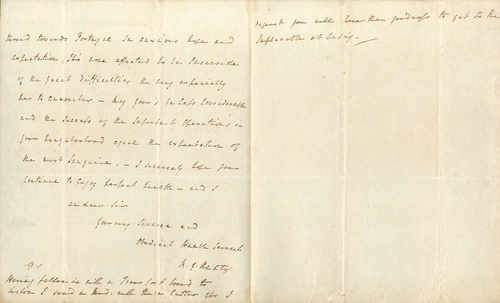 turned towards Portugal in anxious hope and
expectation, tho' none affected to be insensible
of the great difficulties the army especially
has to encounter - may yours be less considerable
and the success of the important operations in
your neighbourhood equal the expectation of
the most sanguine. - I sincerely hope you
continue to enjoy perfect health - and I
am dear Sir
your very sincere and
Obedient Humble Servant
K. G.
Having fallen in with a Transport bound to
Lisbon I send a with these letters wh. I
request you will have the goodness to get to the
at Lisbon.